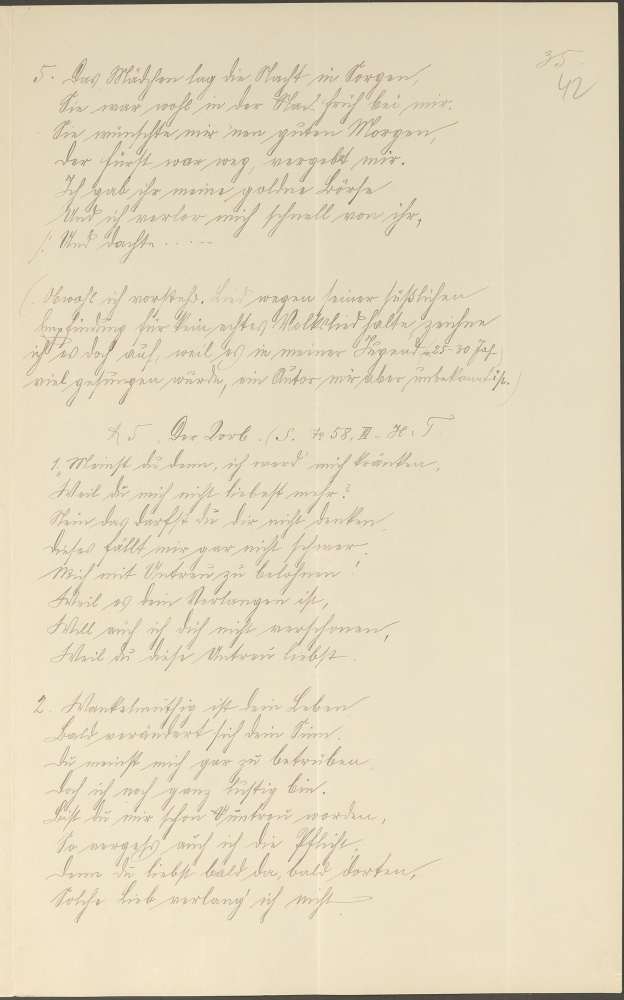 35.
42
5. Das Mädchen lag die Nacht in Sorgen,
Sie war wohl in der Nacht früh bei mir.
Sie wünschte mir 'nen guten Morgen,
Der Fürst war weg, vergebt mir.
Ich gab ihr meine goldne Börse
Und ich verlor mich schnell von ihr,
/: Und dachte .....
(Obwohl ich vorsteh. Lied wegen seiner süßlichen
Empfindung für kein echtes Volkslied halte, zeichne
ich es doch auf, weil es in meiner Jugend 25-30 Jah.
viel gesungen wurde, ein Autor mir aber unbekannt ist.)
5. Der Korb. (S. 58, II. H. T.
1. Meinst du denn, ich werd' mich kränken,
Weil du mich nicht liebest mehr?
Nein, das darfst du dir nicht denken,
Dieses fällt mir gar nicht schwer.
Mich mit Untreu zu belohnen!
Weil es dein Verlangen ist,
Will auch ich dich nicht verschonen,
Weil du diese Untreu liebst.
2. Wankelmüthig ist dein Leben
Bald verändert sich dein Sinn.
Du meinst mich gar zu betrüben
Doch ich noch ganz lustig bin.
Bist du mir schon untreu worden,
So vergess auch ich die Pflicht,
Denn du liebst bald da, bald dorten,
Solche Lieb verlang' ich nicht.